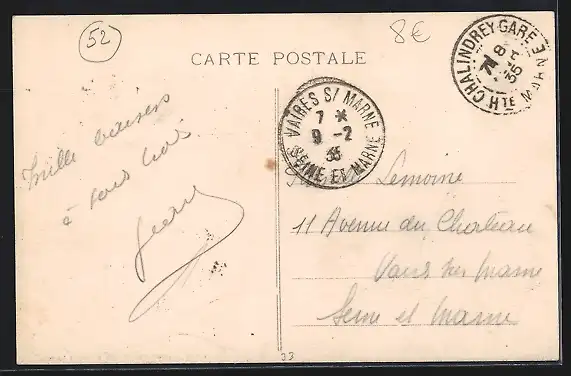 52
8€
CARTE POSTALE
CHALINDREY-GARE
8 -2
35
HTE MARNE
VAIRES S/ MARNE
7 *
9 -2
35
SEINE ET MARNE
Mille baisers
à tous trois
Lemoine
11 Avenue du Chateau
Vaires sur Marne
Seine et Marne
33